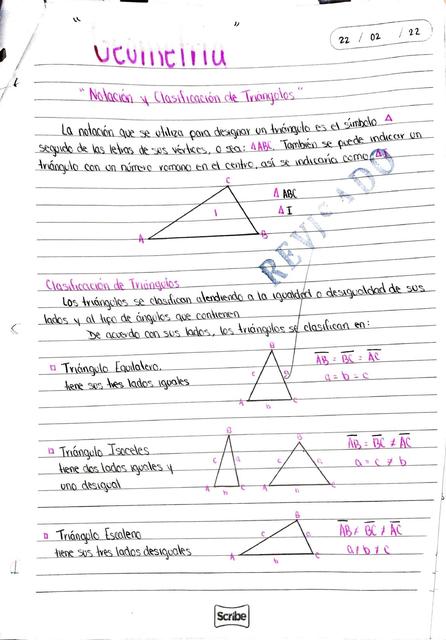 22 / 02 / 22
Geometría
"Notación y Clasificación de Triángulos"
La notación que se utiliza para designar un triángulo es el símbolo Δ
seguido de las letras de sus vértices, o sea: Δ ABC. También se puede indicar un
triángulo con un número romano en el centro, así se indicaría como ΔI
C
Δ ABC
I
Δ I
A
B
REVISADO
Clasificación de Triángulos
Los triángulos se clasifican atendiendo a la igualdad o desigualdad de sus
lados y al tipo de ángulos que contienen
De acuerdo con sus lados, los triángulos se clasifican en:
Triángulo Equilatero.
tiene sus tres lados iguales
B
c a
A b C
AB = BC = AC
a = b = c
Triángulo Isoceles
tiene dos lados iguales y
uno desigual
B
c a
A b C
B
c a
A b C
AB = BC ≠ AC
a = c ≠ b
Triángulo Escaleno
tiene sus tres lados desiguales
B
c a
A b C
AB ≠ BC ≠ AC
a ≠ b ≠ c
Scribe